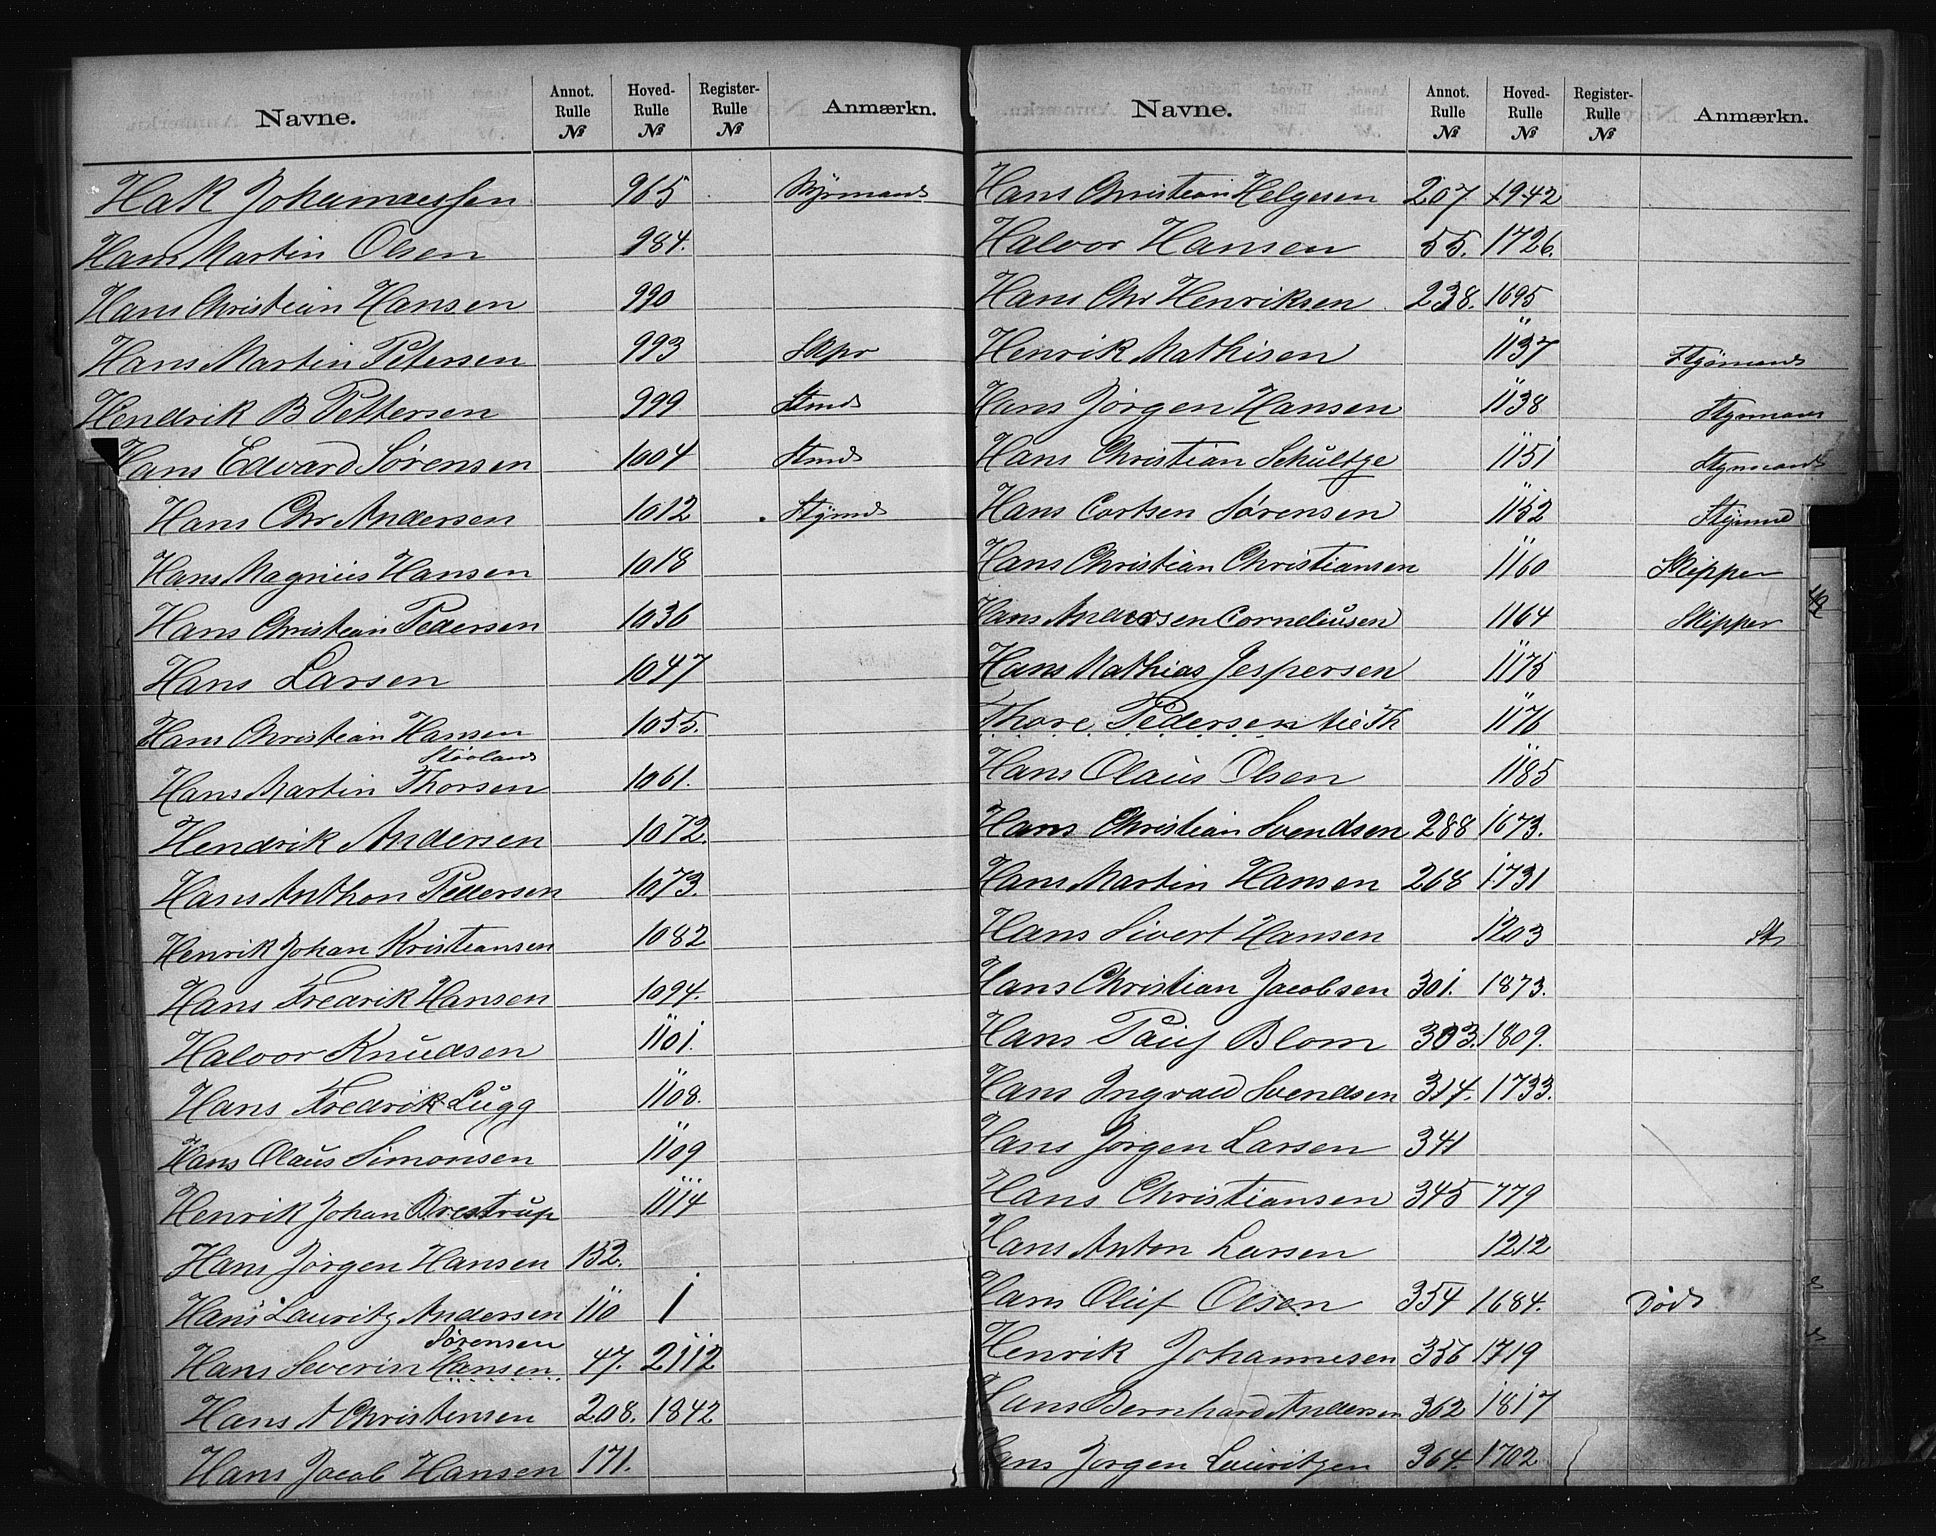 Navne. Annot. Rulle № Hoved- Rulle № Register- Rulle № Anmærkn.
Hak Johannessen 965 Styrmand
Hans Martin Olsen 984.
Hans Christian Hansen 990
Hans Martin Petersen 993 Skpr
Hendrik B Pettersen 999 Stmd
Hans Edvard Sørensen 1004 Stmd
Hans Chr Andersen 1012 Stymd
Hans Magnus Hansen 1018
Hans Christian Pedersen 1036
Hans Larsen 1047
Hans Christian Hansen 1055.
Støoland
Hans Martin Thorsen 1061.
Hendrik Andersen 1072.
Hans Anthon Pedersen 1073.
Henrik Johan Kristiansen 1082
Hans Fredrik Hansen 1094.
Halvor Knudsen 1101.
Hans Fredrik Lugg 1108.
Hans Olaus Simonsen 1109
Henrik Johan Brestrup 1114
Hans Jørgen Hansen 152.
Hans Lauritz Andersen 110 1
Sørensen
Hans Severin Hansen 47. 2112
Hans A Christensen 208. 1842
Hans Jacob Hansen 171.
Navne. Annot. Rulle № Hoved- Rulle № Register- Rulle № Anmærkn.
Hans Christian Helgesen 207 1942
Halvor Hansen 55. 1726.
Hans Chr Henriksen 238. 1695
Henrik Mathisen 1137 Styrmand
Hans Jørgen Hansen 1138 Styrmand
Hans Christian Schultze 1151 Styrmand
Hans Cortsen Sørensen 1152 Stymnd
Hans Christian Christiansen 1160 Skipper
Hans Andersen Corneliusen 1164 Skipper
Hans Mathias Jespersen 1175
Thore Pedersen Mæth 1176
Hans Olaus Olsen 1185
Hans Christian Svendsen 288 1673.
Hans Martin Hansen 268 1731
Hans Sivert Hansen 1203 St
Hans Christian Jacobsen 301. 1873.
Hans Pauf Blom 303. 1809.
Hans Ingvald Svendsen 314. 1733.
Hans Jørgen Larsen 341
Hans Christiansen 345 779
Hans Anton Larsen 1212
Hans Oluf Olsen 354 1684. Død
Henrik Johannesen 356 1719
Hans Bernhard Andersen 362 1817
Hans Jørgen Lauritzen 364. 1702